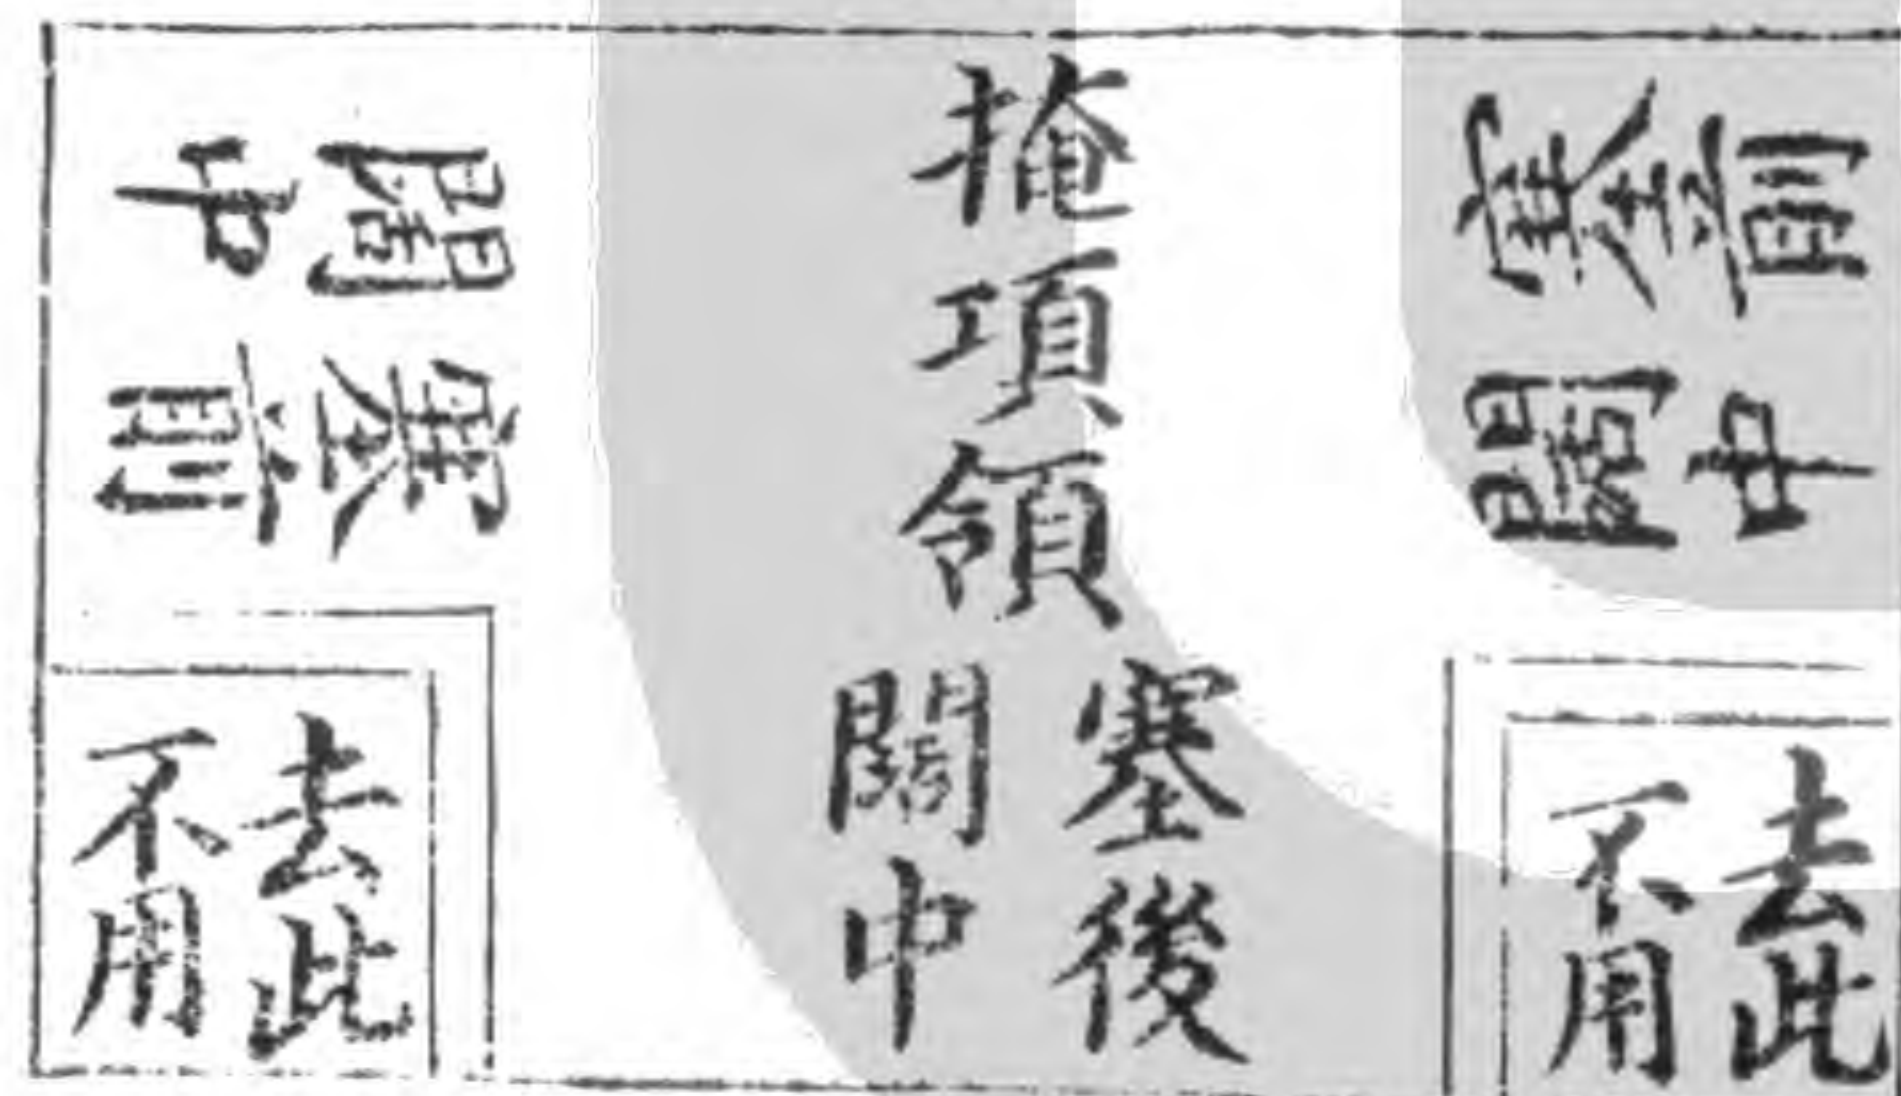 塞前
闊中
去此
不用
掩項領
塞後
闊中
塞前
闊中
去此
不用